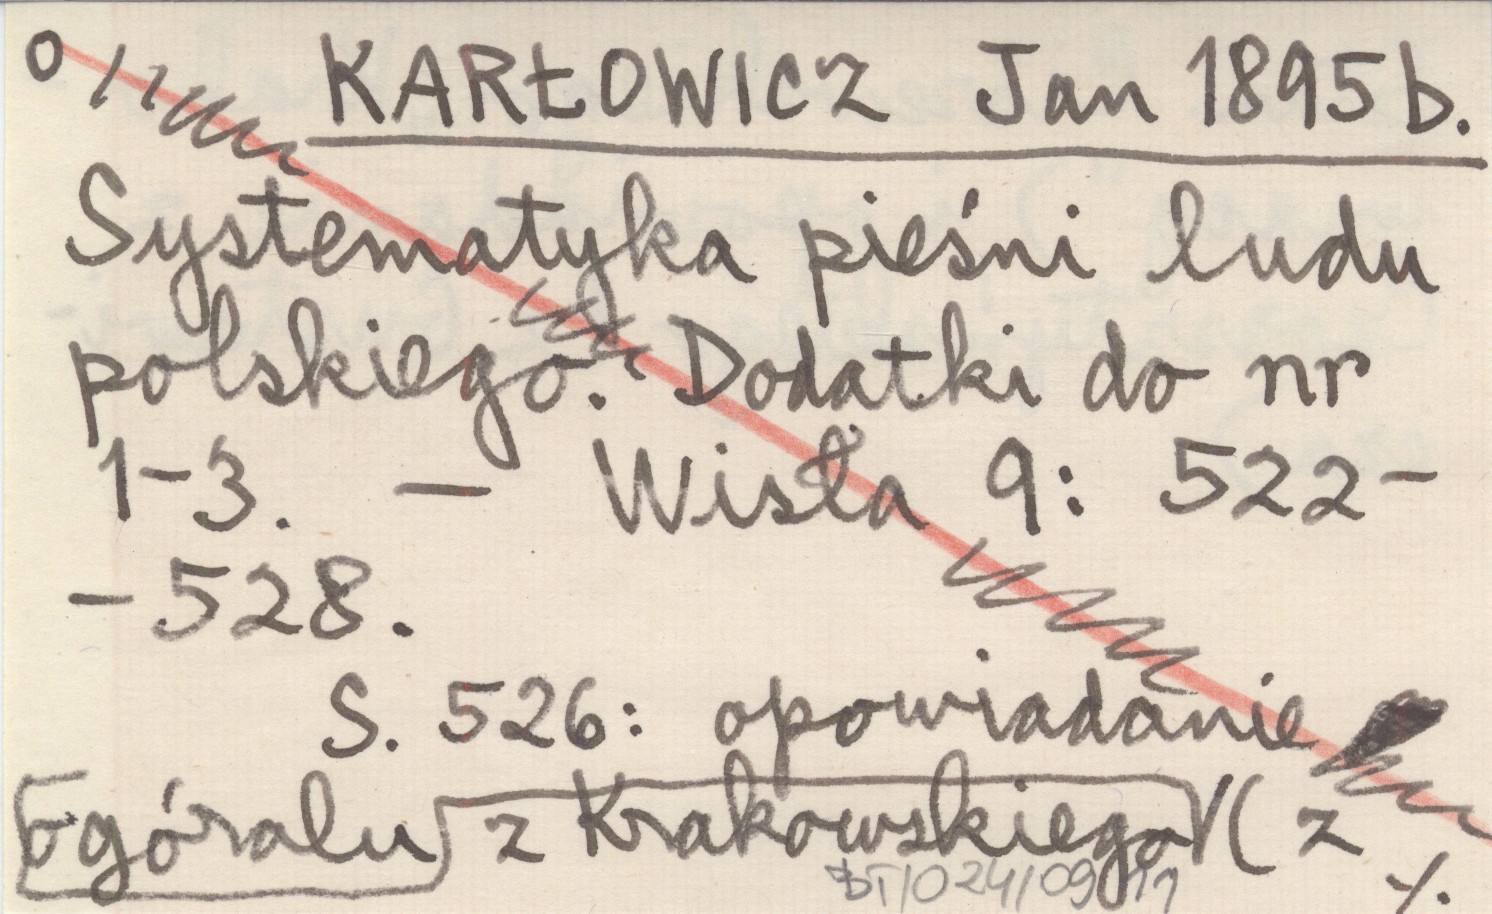 o KARŁOWICZ Jan 1895b.
Systematyka pieśni ludu
polskiego. Dodatki do nr
1-3. — Wisła 9: 522-
-528.
S. 526: opowiadanie
o góralu z Krakowskiego (z
BT/024/09 11 ./.